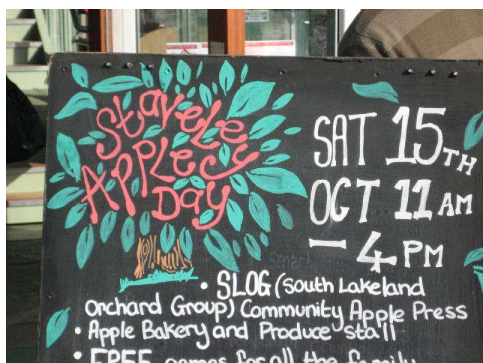 Staveley
APPLE
DAY
SAT 15TH
OCT 11 AM
- 4 PM
• SLOG (South Lakeland
Orchard Group) Community Apple Press
• Apple Bakery and Produce stall
• FREE games for all the family